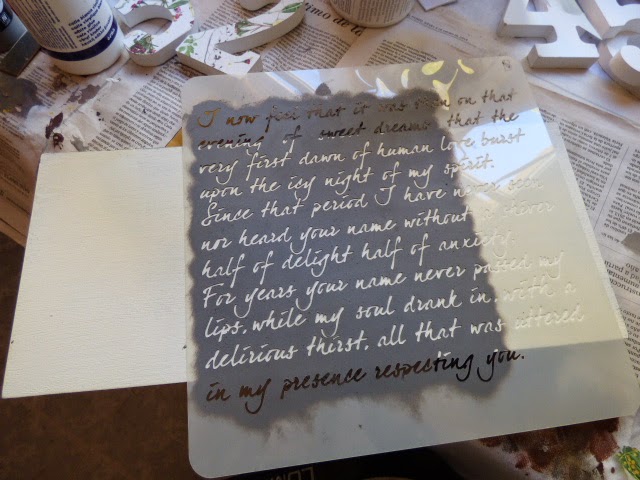 I now feel that it was then on that
evening of sweet dreams that the
very first dawn of human love burst
upon the icy night of my spirit.
Since that period I have never seen
nor heard your name without a shiver
half of delight half of anxiety.
For years your name never passed my
lips, while my soul drank in, with a
delirious thirst, all that was uttered
in my presence respecting you.